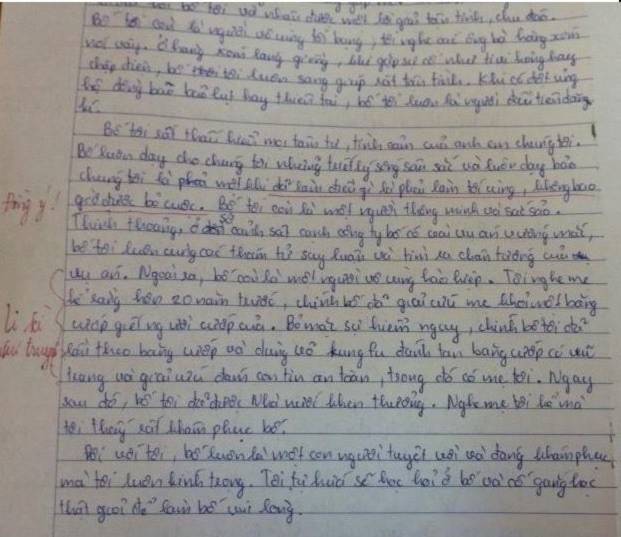 bố tôi và nhận được một lời giải tận tình, chu đáo.
Bố tôi còn là người vô cùng tốt bụng, tôi nghe các ông bà hàng xóm
nói vậy. Ở hàng xóm láng giềng, khi gặp sự cố như trui hỏng hay
chập điện, bố tôi luôn sang giúp rất tận tình. Khi có đợt ủng
hộ đồng bào bão lụt hay thiên tai, bố tôi luôn là người đầu tiên đăng
kí.
Bố tôi rất thấu hiểu mọi tâm tư, tình cảm của anh em chúng tôi.
Bố luôn dạy cho chúng tôi những triết lý sống sâu sắc và luôn dạy bảo
chúng tôi là phải một khi đã làm điều gì là phải làm tới cùng, không bao
Đồng ý!
giờ được bỏ cuộc. Bố tôi còn là một người thông minh và sắc sảo.
Thỉnh thoảng, ở sở cảnh sát cạnh công ty bố có vài vụ án vướng mắc,
bố tôi luôn cùng các thám tử suy luận và tìm ra chân tướng của
vụ án. Ngoài ra, bố còn là một người vô cùng hào hiệp. Tôi nghe mẹ
kể rằng hơn 20 năm trước, chính bố đã giải cứu mẹ khỏi một băng
cướp giết người cướp của. Bỏ mặc sự hiểm nguy, chính bố tôi đã
Li kì
như truyện
lần theo băng cướp và dùng võ kungfu đánh tan băng cướp có vũ
trang và giải cứu đám con tin an toàn, trong đó có mẹ tôi. Ngay
sau đó, bố tôi đã được Nhà nước khen thưởng. Nghe mẹ tôi kể mà
tôi thấy rất khâm phục bố.
Đối với tôi, bố luôn là một con người tuyệt vời và đáng khâm phục
mà tôi luôn kính trọng. Tôi tự hứa sẽ học hỏi ở bố và cố gắng học
thật giỏi để làm bố vui lòng.